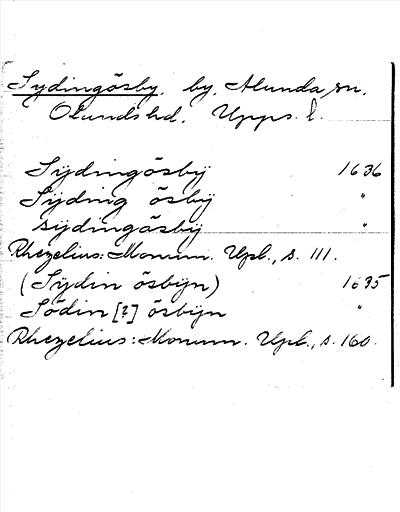 Sydingösby, by, Alunda sn,
Olands hd, Upps. l.
Sÿdingösbÿ 1636
Sÿding ösbÿ "
sÿdingösbÿ "
Rhezelius: Monum. Upl., s. 111.
(Sÿdin ösbijn) 1635
Södin [?] ösbijn "
Rhezelius: Monum. Upl., s. 160.